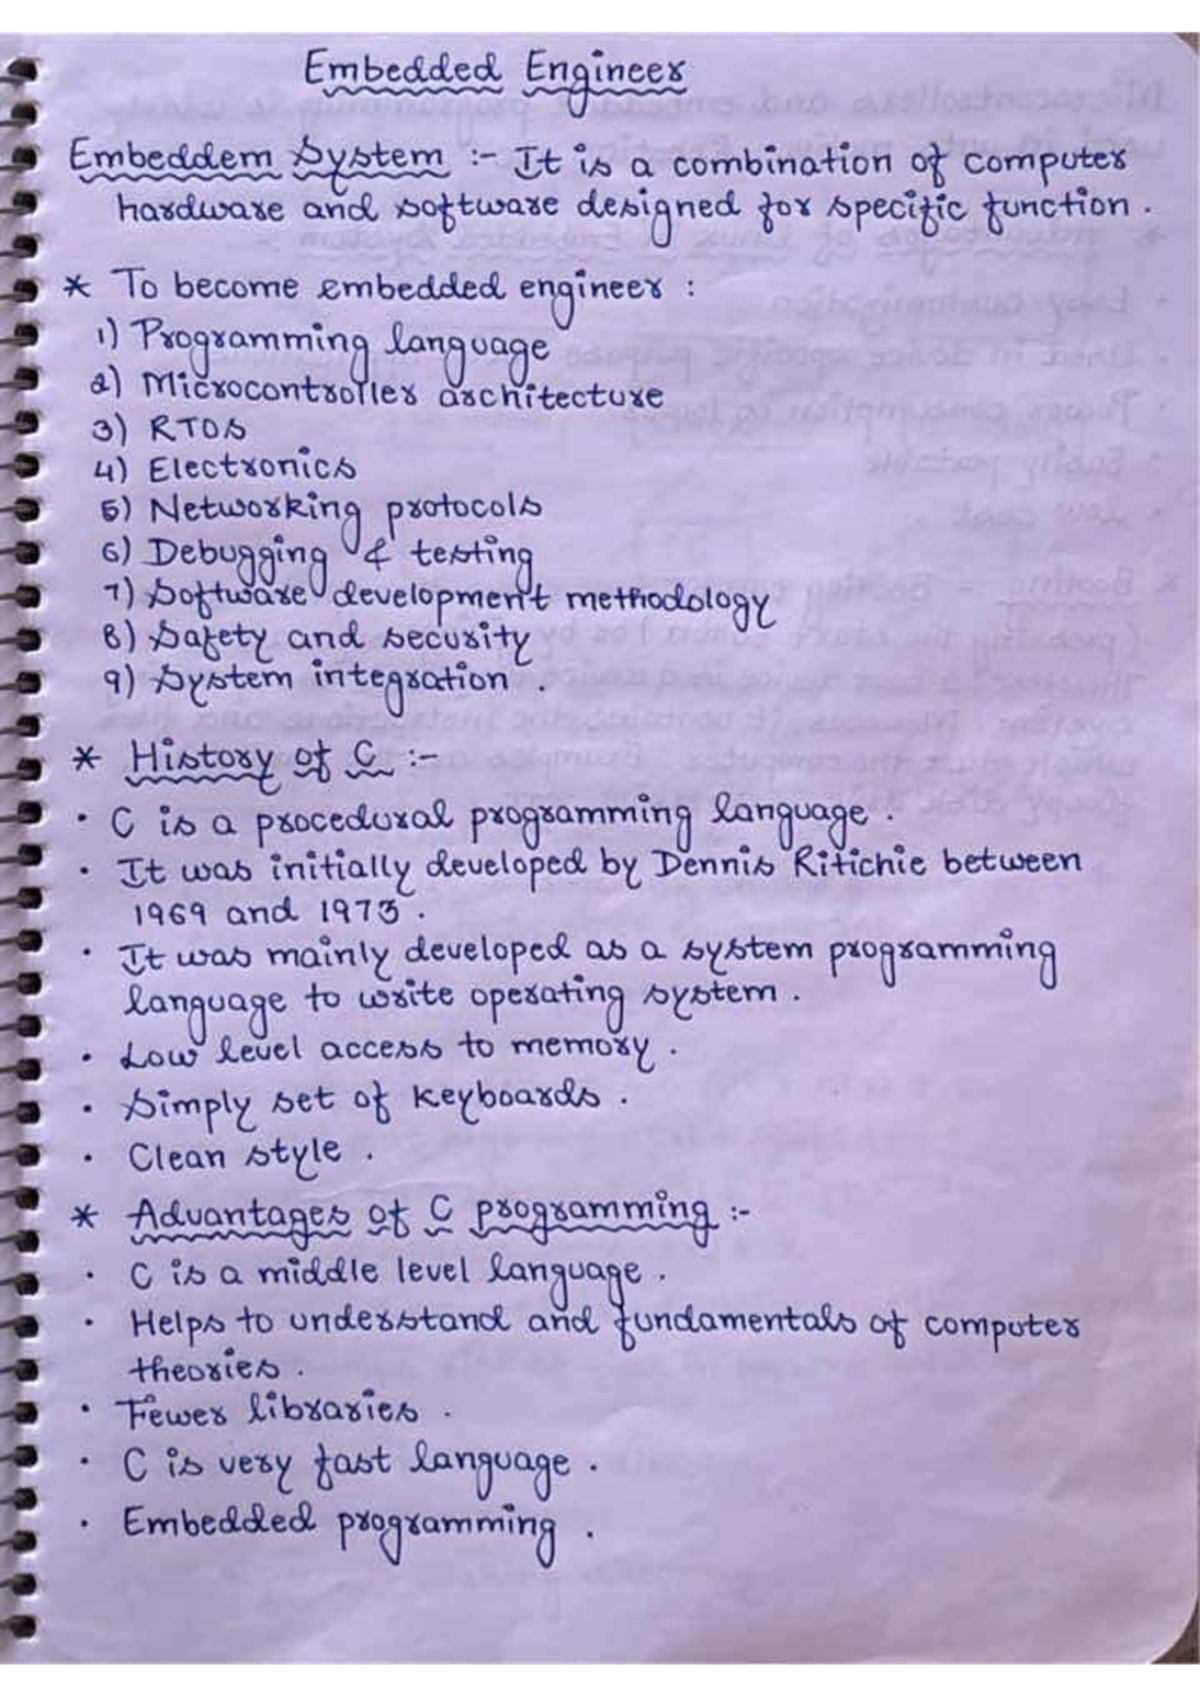 Embedded Engineer
Embeddem System :- It is a combination of computer
hardware and software designed for specific function.
* To become embedded engineer :
1) Programming language
2) Microcontroller architecture
3) RTOS
4) Electronics
5) Networking protocols
6) Debugging & testing
7) Software development methodology
8) Safety and security
9) System integration .
* History of C :-
• C is a procedural programming language .
• It was initially developed by Dennis Ritichie between
1969 and 1973 .
• It was mainly developed as a system programming
language to write operating system .
• Low level access to memory .
• Simply set of keyboards .
• Clean style .
* Advantages of C programming :-
• C is a middle level language .
• Helps to understand and fundamentals of computer
theories .
• Fewer libraries .
• C is very fast language .
• Embedded programming .